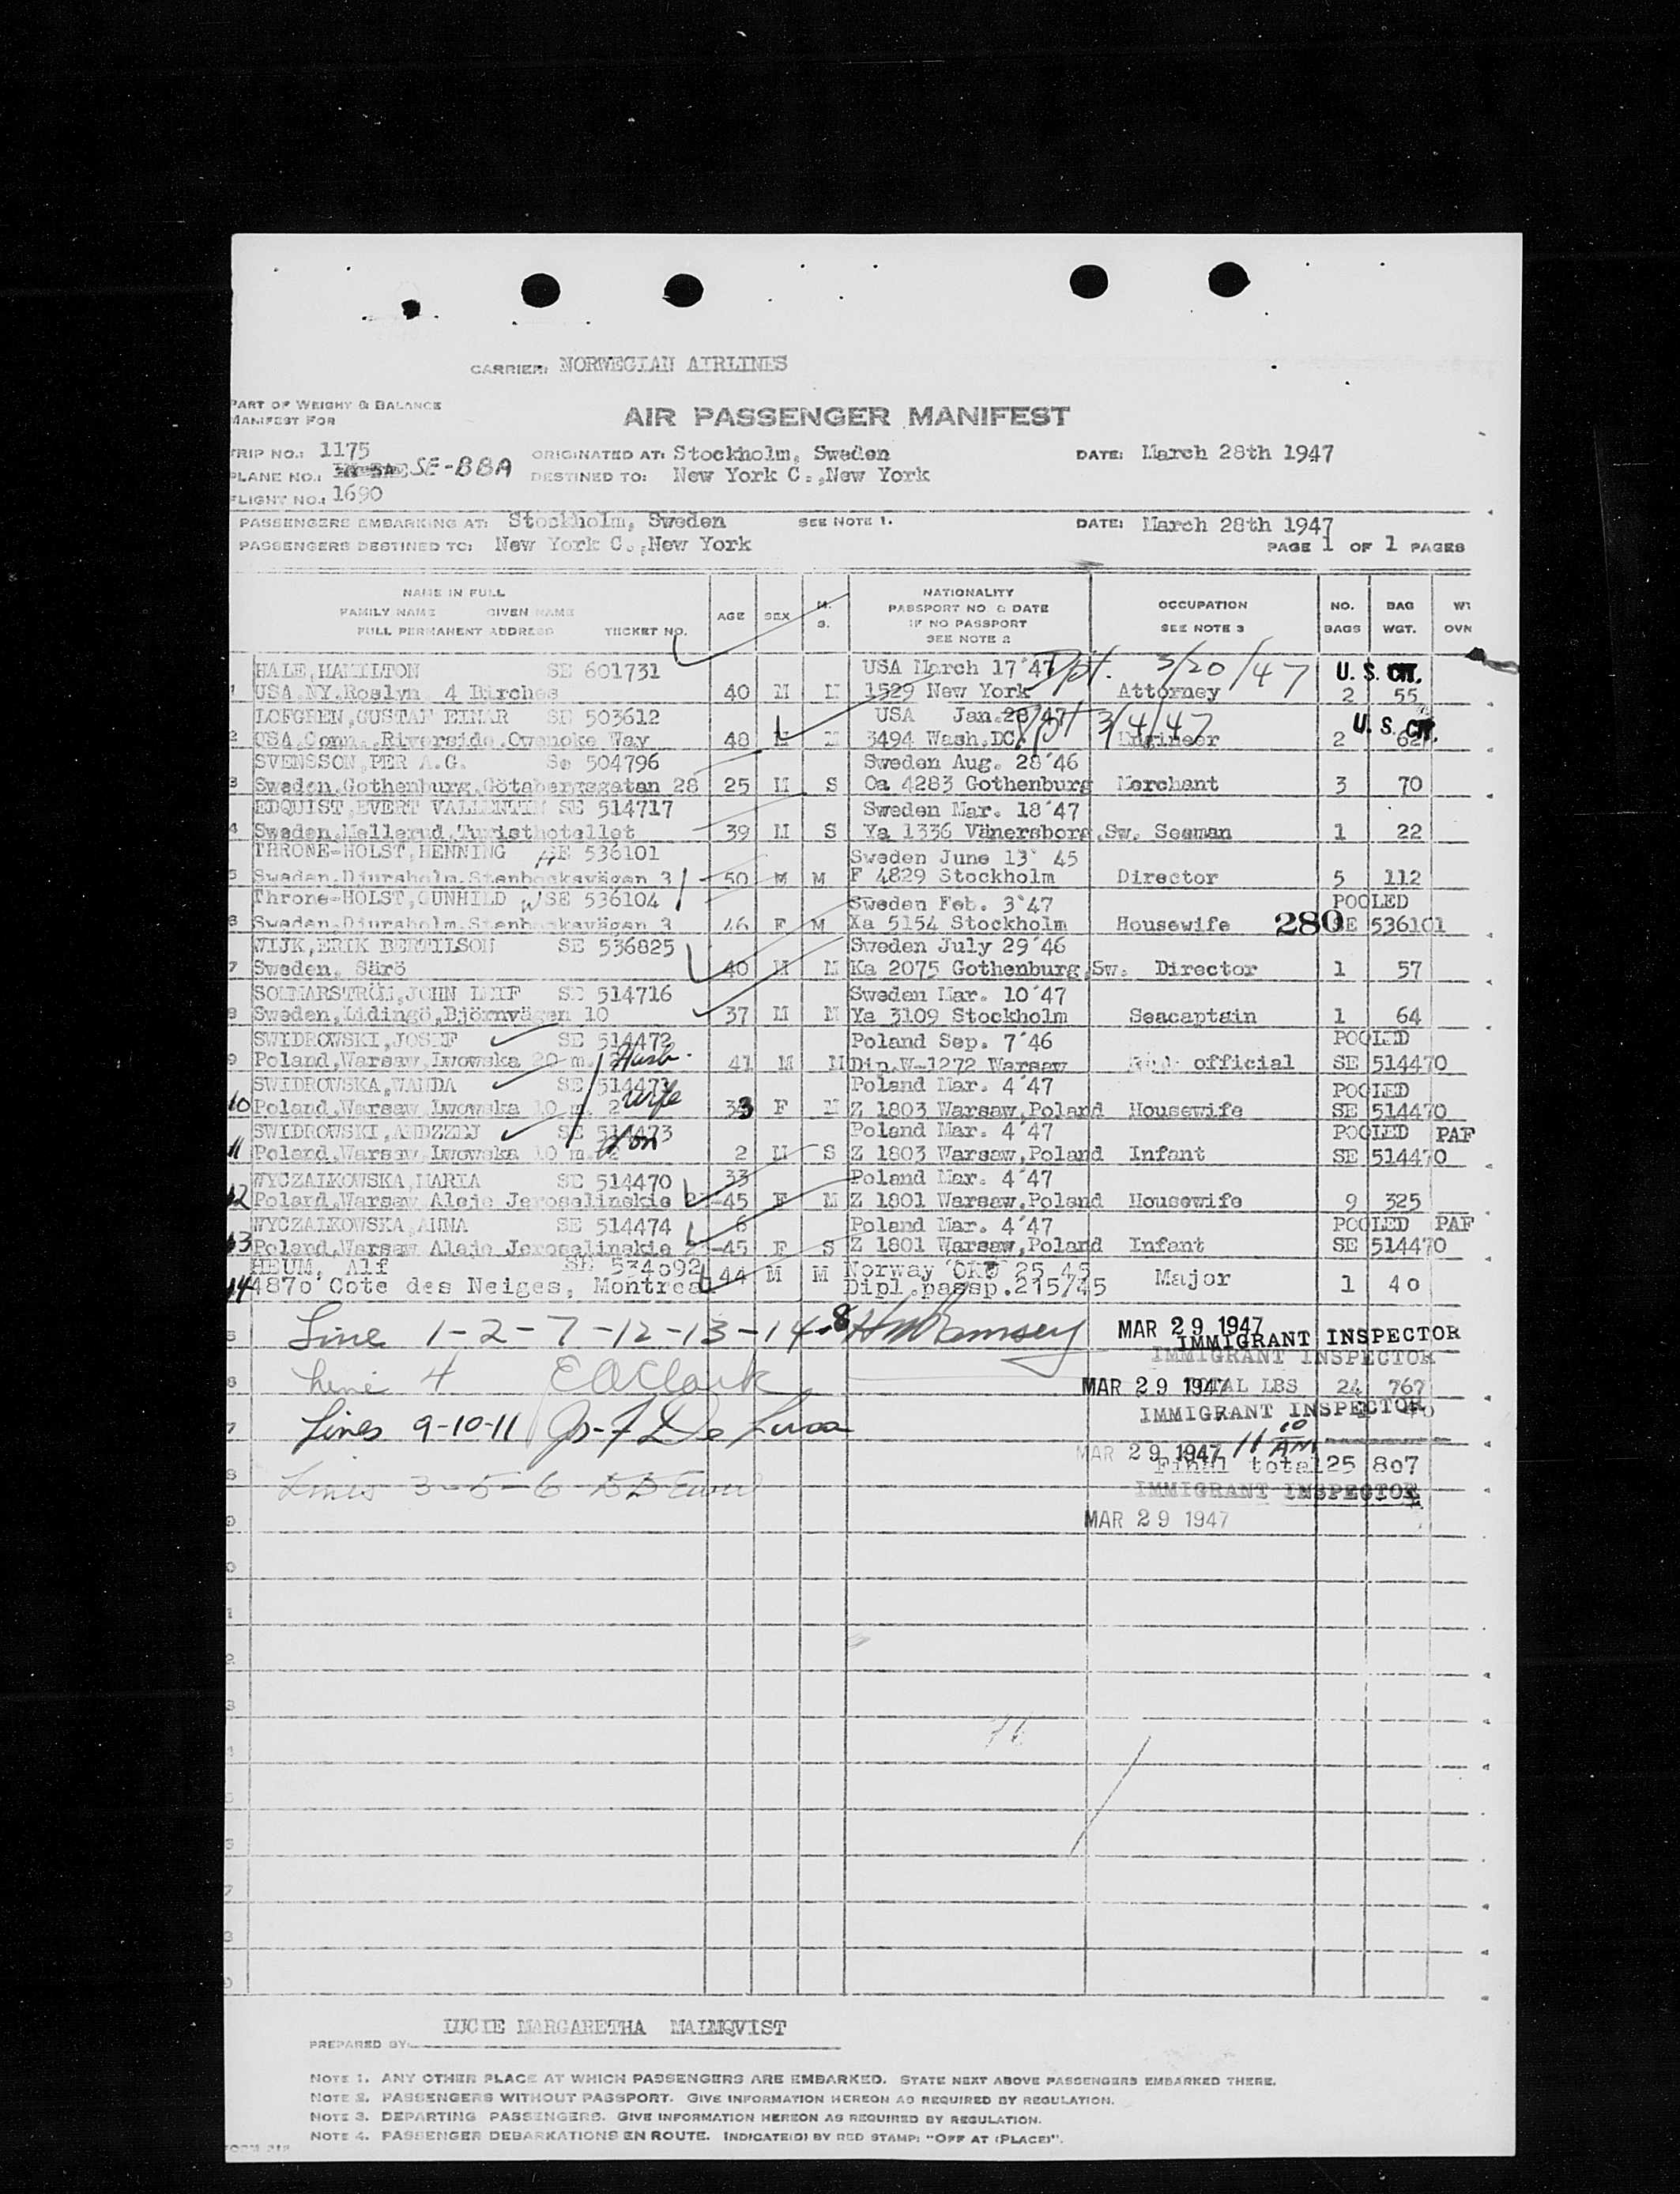 CARRIER: NORWEGIAN AIRLINES
PART OF WEIGHT & BALANCE
MANIFEST FOR
AIR PASSENGER MANIFEST
TRIP NO.: 1175 ORIGINATED AT: Stockholm, Sweden DATE: March 28th 1947
PLANE NO.: SE-BBA DESTINED TO: New York C.,New York
FLIGHT NO.: 1690
PASSENGERS EMBARKING AT: Stockholm, Sweden SEE NOTE 1. DATE: March 28th 1947
PASSENGERS DESTINED TO: New York C.,New York PAGE 1 OF 1 PAGES
NAME IN FULL
FAMILY NAME GIVEN NAME
FULL PERMANENT ADDRESS TICKET NO.
AGE SEX M. S.
NATIONALITY
PASSPORT NO & DATE
IF NO PASSPORT
SEE NOTE 2
OCCUPATION
SEE NOTE 3
NO. BAGS
BAG WGT.
WT OVN
HALE,HAMILTON SE 601731 USA March 17'47 3/20/47 U. S. CIT.
1 USA.NY.Roslyn 4 Birches 40 M M 1529 New York Attorney 2 55
LOFGREN,GUSTAF EINAR SE 503612 USA Jan.28'47 3/4/47 U. S. CIT.
2 USA.Conn.,Riverside.Owenoke Way 48 M M 3494 Wash.DC. Engineer 2 62
SVENSSON,PER A.G. Se 504796 Sweden Aug. 28'46
3 Sweden.Gothenburg.Götabergsgatan 28 25 M S Oa 4283 Gothenburg Merchant 3 70
EDQUIST,EVERT VALLENTIN SE 514717 Sweden Mar. 18'47
4 Sweden.Mellerud.Turisthotellet 39 M S Ya 1336 Vänersborg,Sw. Seaman 1 22
THRONE-HOLST,HENNING H SE 536101 Sweden June 13' 45
5 Sweden.Djursholm.Stenbocksvägen 3 50 M M F 4829 Stockholm Director 5 112
Throne-HOLST,GUNHILD W SE 536104 Sweden Feb. 3'47 POOLED
6 Sweden.Djursholm.Stenbocksvägen 3 46 F M Xa 5154 Stockholm Housewife 280 SE 536101
WIJK,ERIK BERTILSON SE 536825 Sweden July 29'46
7 Sweden. Särö 40 M M Ka 2075 Gothenburg,Sw. Director 1 57
SOMMARSTRÖM,JOHN LEIF SE 514716 Sweden Mar. 10'47
8 Sweden,Lidingö,Björnvägen 10 37 M M Ya 3109 Stockholm Seacaptain 1 64
SWIDROWSKI,JOSEF SE 514472 Poland Sep. 7'46 POOLED
9 Poland,Warsaw,Lwowska 20 m. Husb. 41 M M Dip.W-1272 Warsaw official SE 514470
SWIDROWSKA,WANDA SE 514471 Poland Mar. 4'47 POOLED
10 Poland,Warsaw,Lwowska 10 m. 2 Wife 33 F M Z 1803 Warsaw,Poland Housewife SE 514470
SWIDROWSKI,ANDZZEJ SE 514473 Poland Mar. 4'47 POOLED PAF
11 Poland,Warsaw,Lwowska 10 m. 2 son 2 M S Z 1803 Warsaw,Poland Infant SE 514470
WYCZALKOWSKA,MARIA SE 514470 33 Poland Mar. 4'47
12 Poland,Warsaw Aleje Jeroselinskie 2 -45 F M Z 1801 Warsaw,Poland Housewife 9 325
WYCZALKOWSKA,ANNA SE 514474 6 Poland Mar. 4'47 POOLED PAF
13 Poland,Warsaw Aleje Jeroselinskie 2 -45 F S Z 1801 Warsaw,Poland Infant SE 514470
HEUM, Alf SE 534092 44 M M Norway OKT 25 45 Major 1 40
14 4870 Cote des Neiges, Montreal Dipl.passp.215/45
Line 1-2-7-12-13-14-8 HW Ramsey MAR 29 1947 IMMIGRANT INSPECTOR
IMMIGRANT INSPECTOR
Line 4 EA Clark MAR 29 1947 TOTAL LBS 24 767
IMMIGRANT INSPECTOR 1 40
Lines 9-10-11 Jos. F De Luca
MAR 29 1947 11 10 AM
Final total 25 807
Lines 3-5-6 IMMIGRANT INSPECTOR
MAR 29 1947
LUCIE MARGARETHA MALMQVIST
PREPARED BY:
NOTE 1. ANY OTHER PLACE AT WHICH PASSENGERS ARE EMBARKED. STATE NEXT ABOVE PASSENGERS EMBARKED THERE.
NOTE 2. PASSENGERS WITHOUT PASSPORT. GIVE INFORMATION HEREON AS REQUIRED BY REGULATION.
NOTE 3. DEPARTING PASSENGERS. GIVE INFORMATION HEREON AS REQUIRED BY REGULATION.
NOTE 4. PASSENGER DEBARKATIONS EN ROUTE. INDICATE(D) BY RED STAMP: "OFF AT (PLACE)".